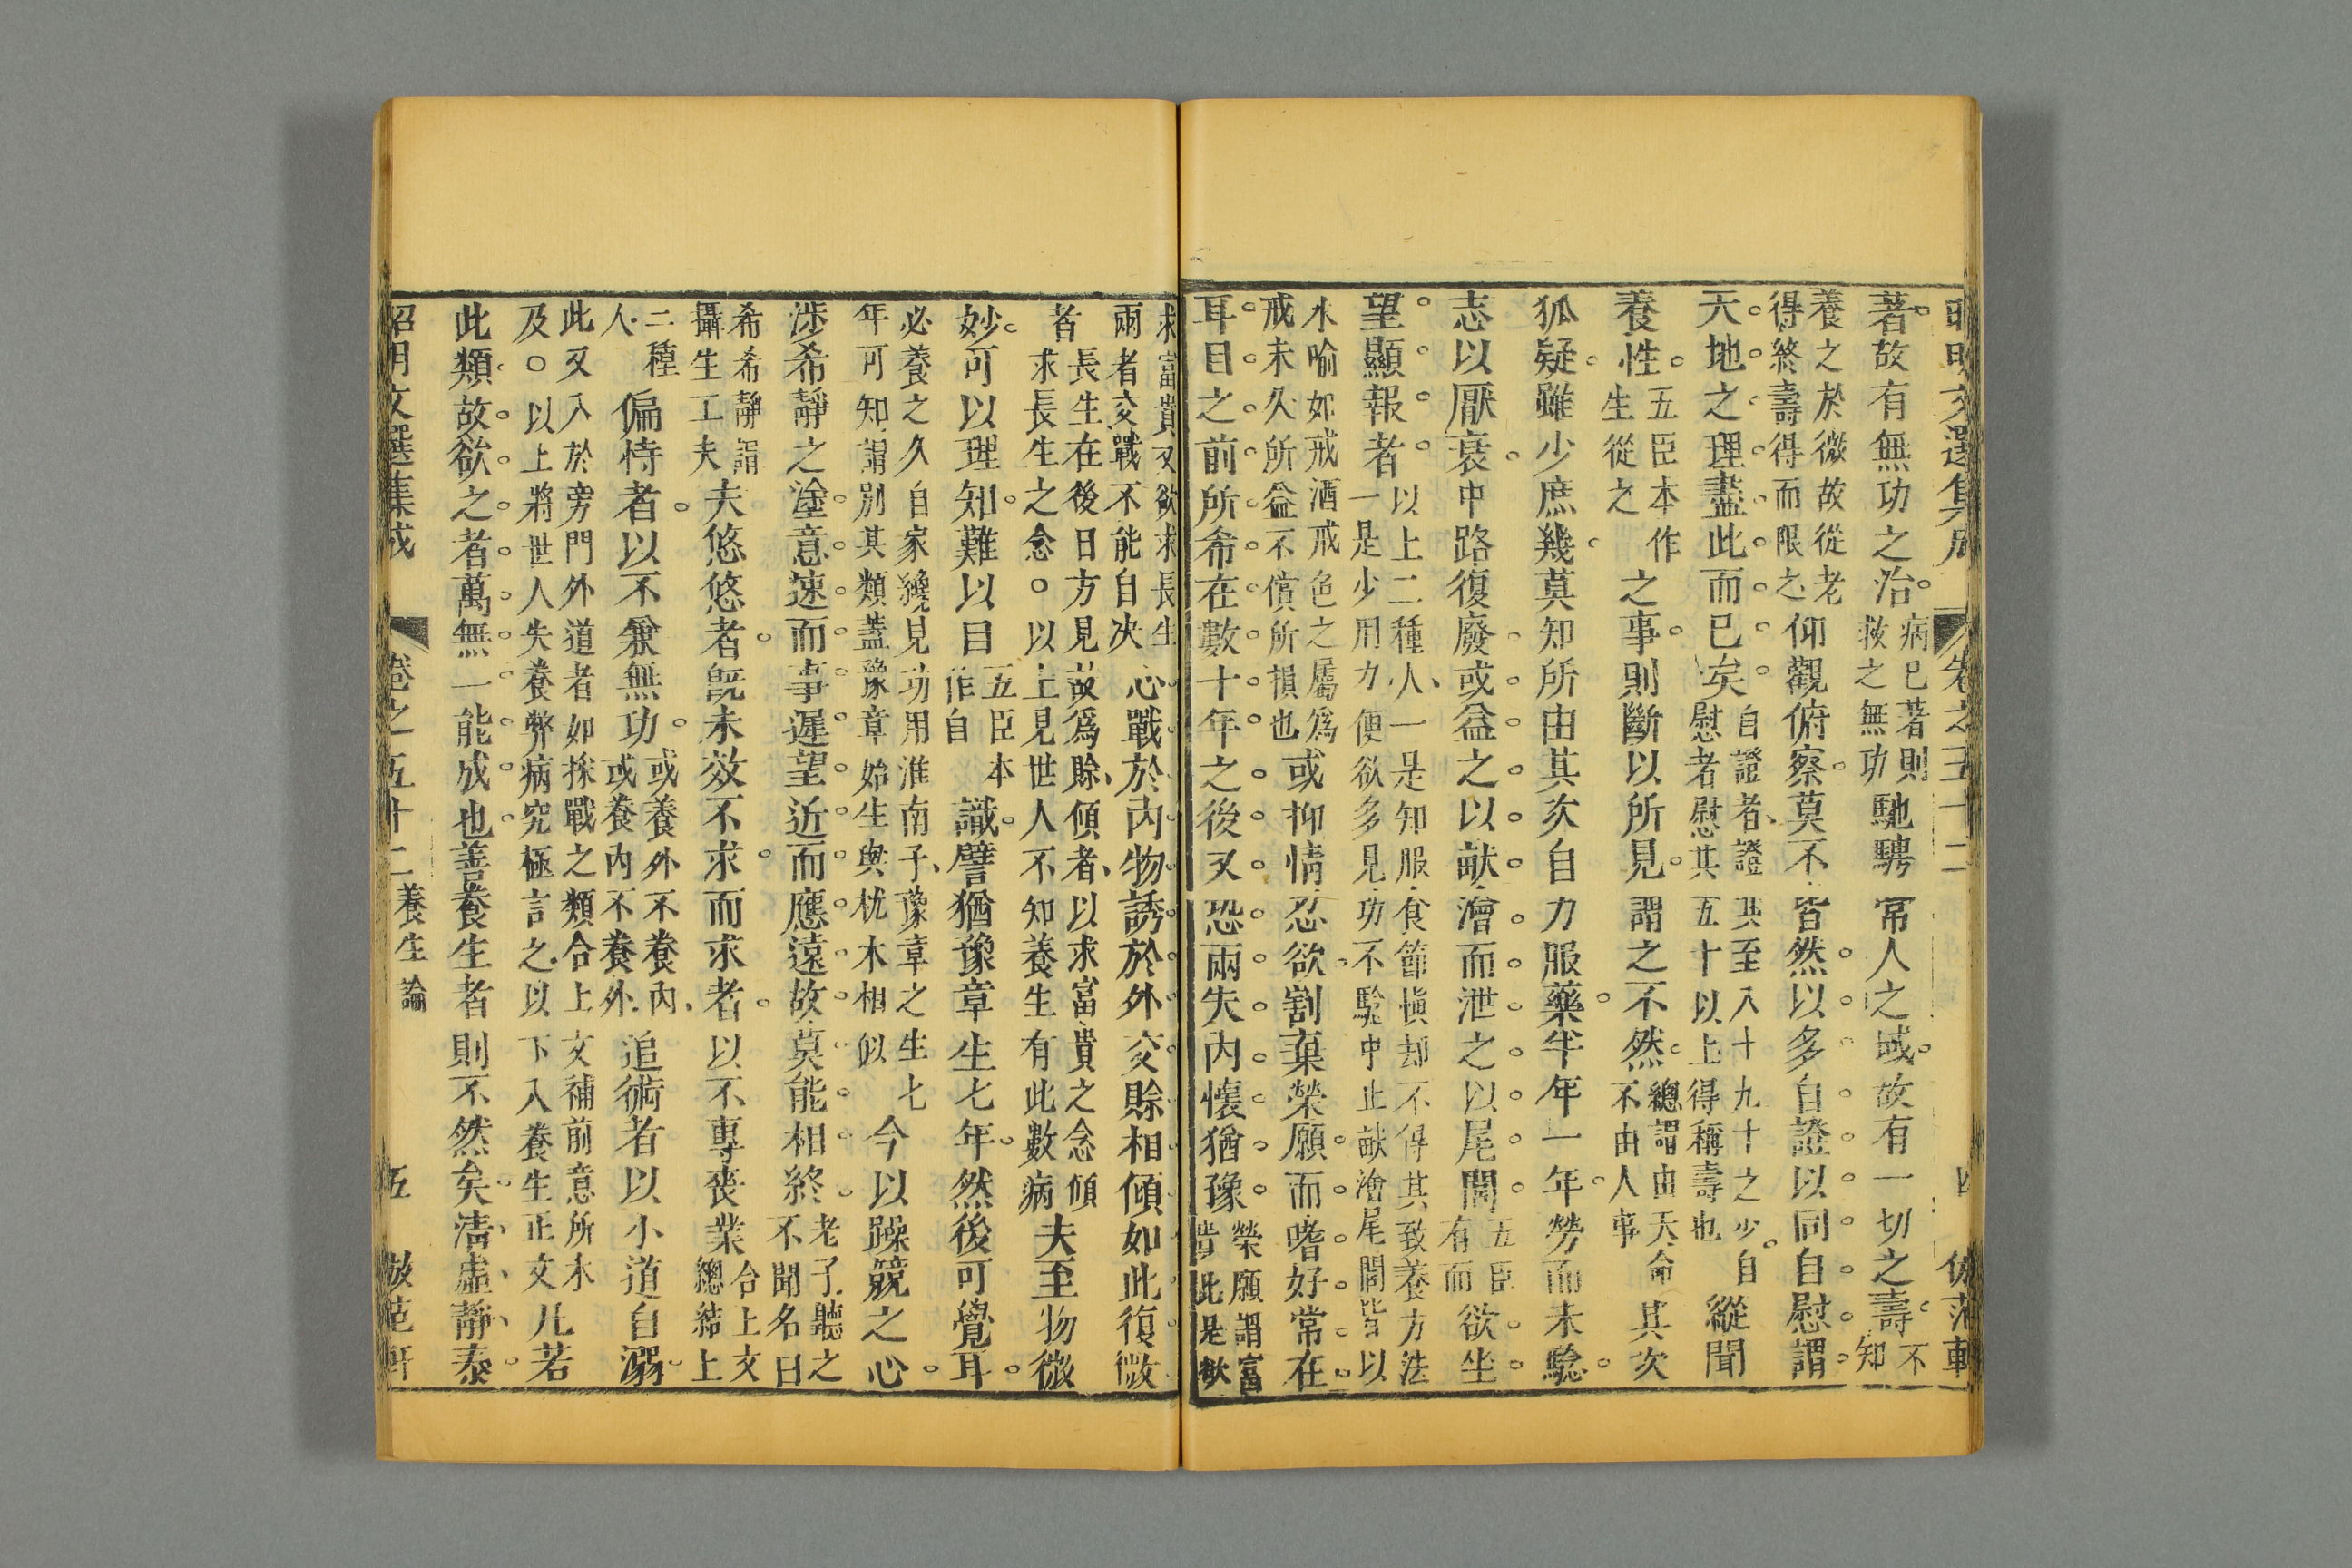 昭明文選集成 卷之五十二 四 倣范軒
著故有無功之治病已著則救之無功馳騁常人之域故有一切之壽不知
養之於微故從老得終壽得而限之仰觀俯察莫不皆然以多自證以同自慰謂
天地之理盡此而已矣自證者證其至八十九十之少自慰者慰其五十以上得稱壽也縱聞
養性五臣本作生從之之事則斷以所見謂之不然總謂由天命不由人事其次
狐疑雖少庶幾莫知所由其次自力服藥半年一年勞而未驗
志以厭衰中路復廢或益之以畎澮而泄之以尾閭五臣有而欲坐
望顯報者以上二種人一是知服食節愼却不得其致養方法一是少用力便欲多見功不驗中止畎澮尾閭皆以
水喻如戒酒戒色之屬爲戒未久所益不償所損也或抑情忍欲割棄榮願而嗜好常在
耳目之前所希在數十年之後又恐兩失內懷猶豫榮願謂富貴此是欲
求富貴又欲求長生兩者交戰不能自决心戰於內物誘於外交賒相傾如此復敗
者長生在後日方見故爲賒傾者以求富貴之念傾求長生之念○以上見世人不知養生有此數病夫至物微
妙可以理知難以目五臣本作自識譬猶豫章生七年然後可覺耳
必養之久自家纔見功用淮南子豫章之生七年可知謂別其類蓋豫章始生與枕木相似今以躁競之心
涉希靜之塗意速而事遲望近而應遠故莫能相終老子聽之不聞名曰
希希靜謂攝生工夫夫悠悠者旣未效不求而求者以不專喪業合上文總結上
二種人偏恃者以不兼無功或養外不養內或養內不養外追術者以小道自溺
此又入於旁門外道者如採戰之類合上文補前意所未及○以上將世人失養弊病究極言之以下入養生正文凡若
此類故欲之者萬無一能成也善養生者則不然矣淸虛靜泰
昭明文選集成 卷之五十二 養生論 五 倣范軒